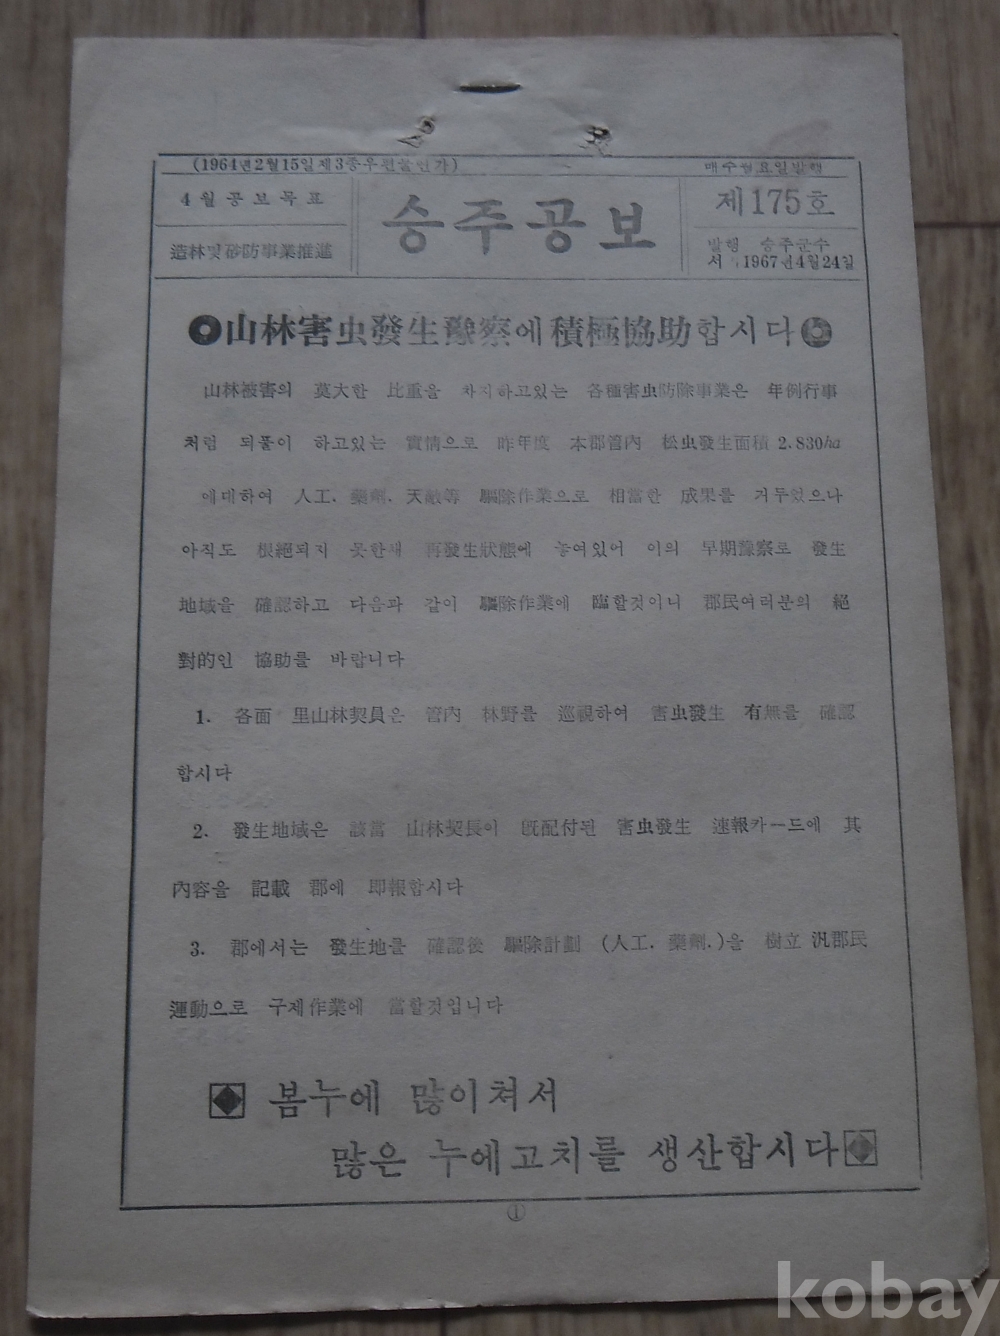 (1964년2월15일제3종우편물인가) 매주월요일발행
4월공보목표
造林및砂防事業推進
승주공보
제175호
발행 승주군수
서 1967년4월24일
山林害虫發生豫察에積極協助합시다
山林被害의 莫大한 比重을 차지하고있는 各種害虫防除事業은 年例行事
처럼 되풀이 하고있는 實情으로 昨年度 本郡管內 松虫發生面積 2.830ha
에대하여 人工. 藥劑. 天敵等 驅除作業으로 相當한 成果를 거두었으나
아직도 根絕되지 못한채 再發生狀態에 놓여있어 이의 早期豫察로 發生
地域을 確認하고 다음과 같이 驅除作業에 臨할것이니 郡民여러분의 絕
對的인 協助를 바랍니다
1. 各面 里山林契員은 管內 林野를 巡視하여 害虫發生 有無를 確認
합시다
2. 發生地域은 該當 山林契長이 旣配付된 害虫發生 速報카ー드에 其
內容을 記載 郡에 即報합시다
3. 郡에서는 發生地를 確認後 驅除計劃 (人工. 藥劑.)을 樹立 汎郡民
運動으로 구제作業에 當할것입니다
봄누에 많이쳐서
많은 누에고치를 생산합시다
①
kobay